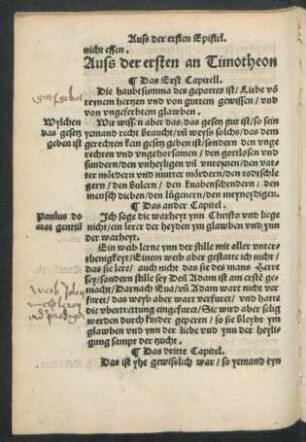 Auß der ersten Epistel.
nicht essen.
Auß der ersten an Timotheon
¶ Das Erst Capitell.
Die haubtsumma des gepottes ist/ Liebe vō
reynem hertzen vnd von guttem gewissen/ vnd
von vngeferbtem glawben.
Wylchen
das gesetz
geben ist
Wir wissen aber das/ das gesetz gut ist/ so sein
yemand recht braucht/ vñ weyß solchs/ das dem
gerechten kein gesetz geben ist/ sondern den vnge
rechten vnd vngehorsamen/ den gottlosen vnd
sundern/ den vnheyligen vñ vnreynen/ den vat-
ter mördern vnd mutter mördern/ den todtschle
gern/ den bulern/ den knabenschendern/ den
mensch dieben/ den lügenern/ den meyneydigen.
¶ Das ander Capitel.
Paulus do
ctor gentiū
Ich sage die warheyt ynn Christo vnd liege
nicht/ ein lerer der heyden ym glawben vnd ynn
der warheyt.
Ein weib lerne ynn der stille mit aller vnter-
thenigkeyt/ Einem weib aber gestatte ich nicht/
das sie lere/ auch nicht das sie des mans Herre
sey/ sondern stille sey Deñ Adam ist am erstē ge-
macht/ Darnach Eua/ vñ Adam wart nicht ver
furet/ das weyb aber wart verfuret/ vnd hatte
die vbertrettung eingefuret/ Sie wird aber selig
werden durch kinder geperen/ so sie bleybt ym
glawben vnd ynn der liebe vnd ynn der heyli-
gung sampt der zucht.
¶ Das dritte Capitel.
Das ist yhe gewißlich war/ so yemand eyn